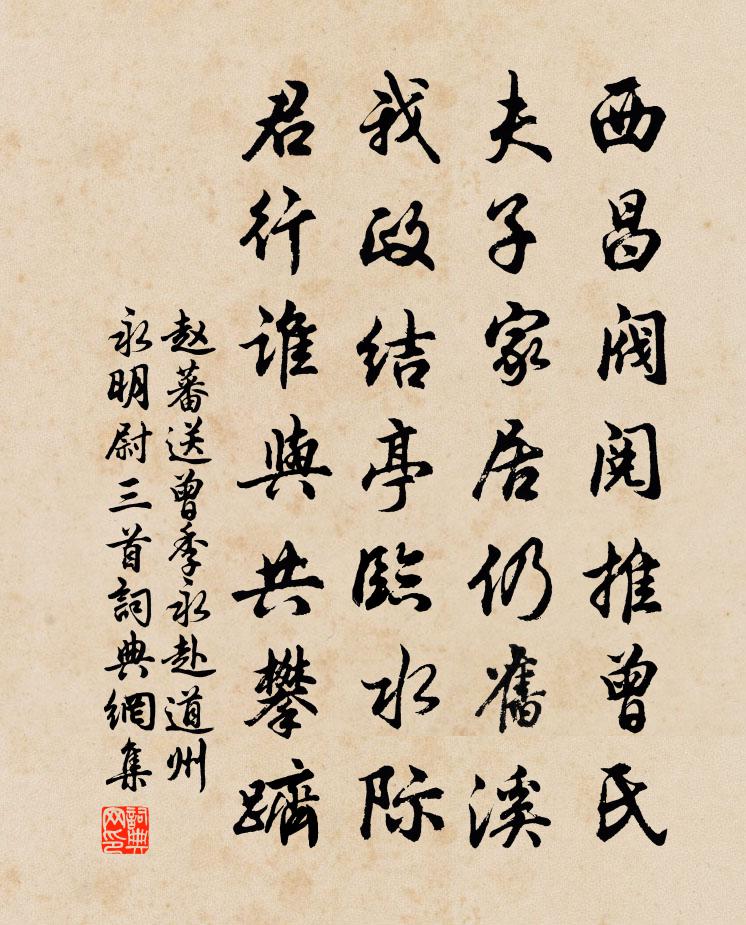 西昌阀阅推曾氏
夫子家居仍舊溪
我政结亭臨水际
君行谁與共攀躋
赵蕃送曾季永赴道州
永明尉三首詞典網集
詞典网印